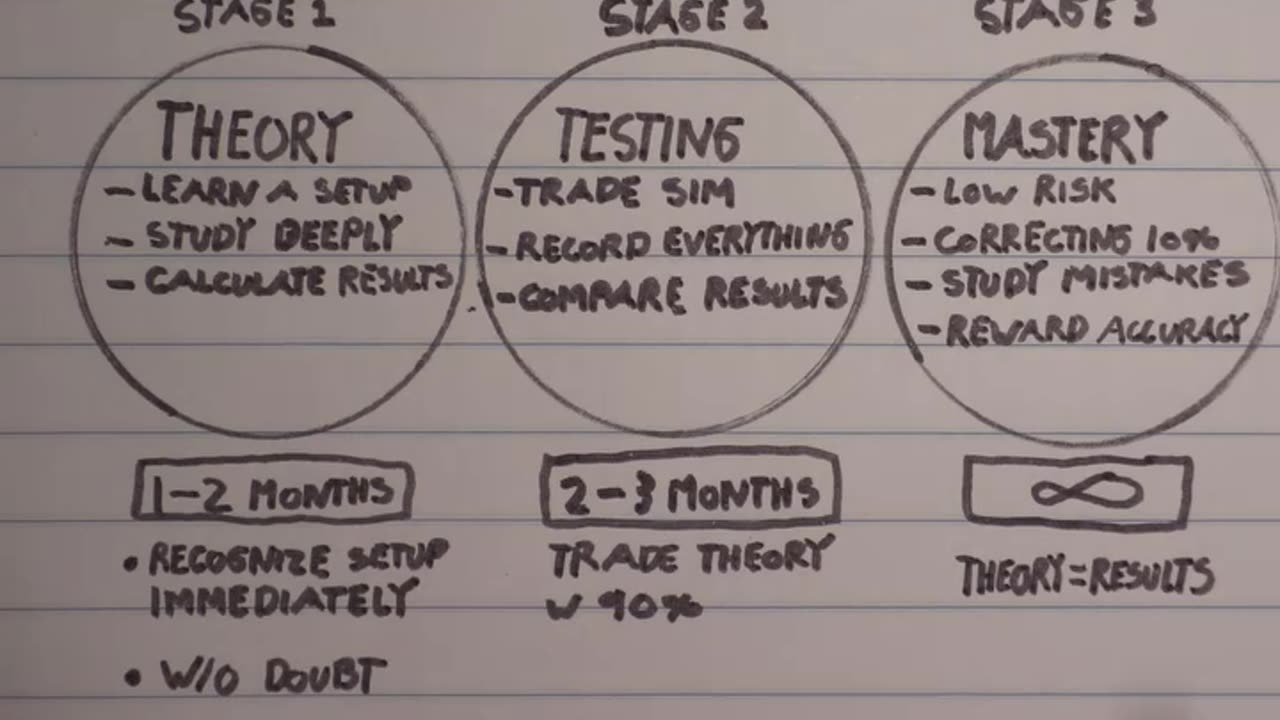 STAGE 1
THEORY
- LEARN A SETUP
- STUDY DEEPLY
- CALCULATE RESULTS
1-2 MONTHS
• RECOGNIZE SETUP
IMMEDIATELY
• W/O DOUBT
STAGE 2
TESTING
- TRADE SIM
- RECORD EVERYTHING
- COMPARE RESULTS
2-3 MONTHS
TRADE THEORY
W 90%
STAGE 3
MASTERY
- LOW RISK
- CORRECTING 10%
- STUDY MISTAKES
- REWARD ACCURACY
∞
THEORY=RESULTS